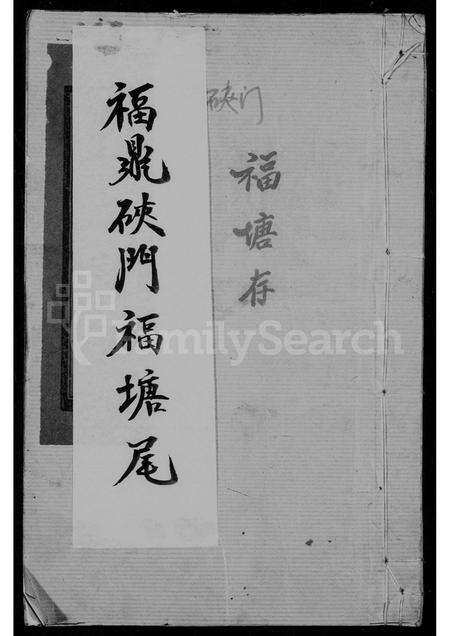 硖门
福塘存
福鼎硤門福塘尾
FamilySearch